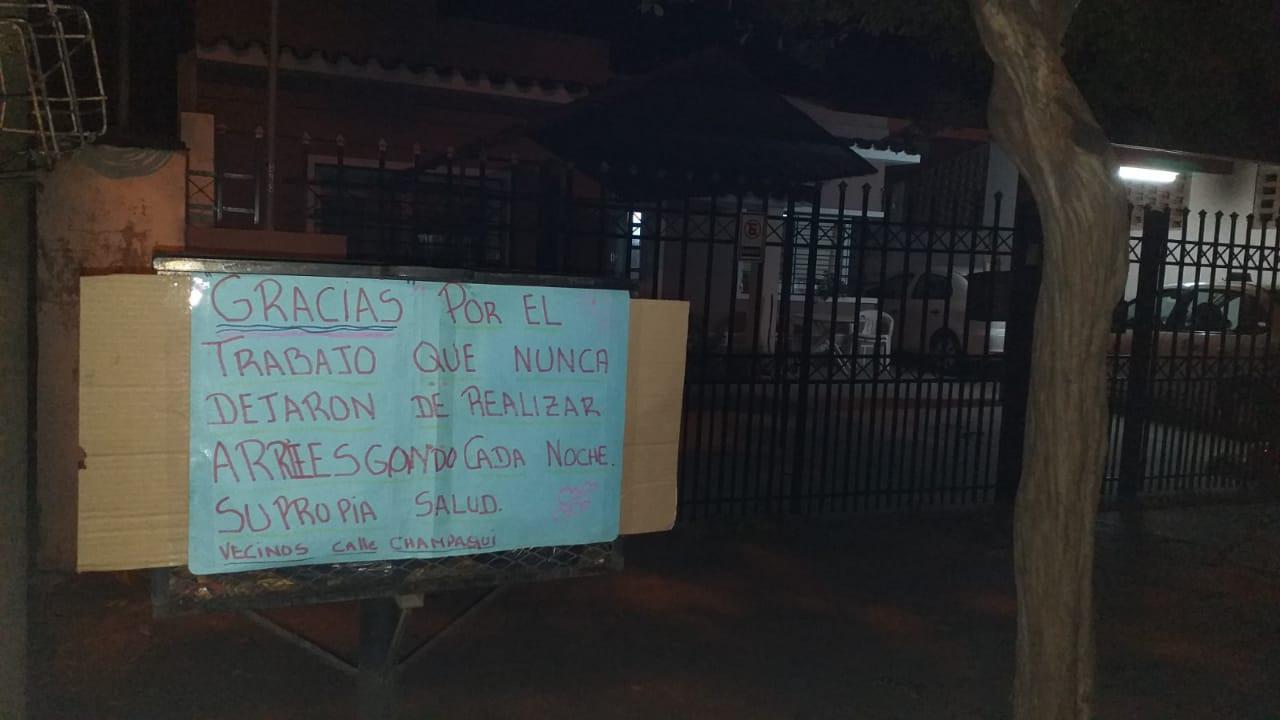 "GRACIAS" POR EL
TRABAJO QUE NUNCA
DEJARON DE REALIZAR
ARRIESGANDO CADA NOCHE.
SU PROPIA SALUD.
VECINOS CALLE CHAMPAQUI